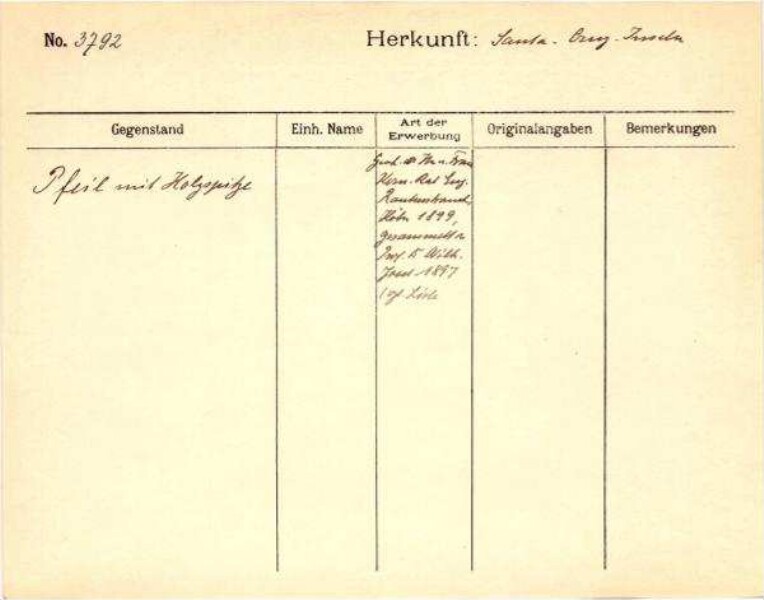 No. 3792
Herkunft: Santa-Cruz-Inseln
Gegenstand
Einh. Name
Art der
Erwerbung
Originalangaben
Bemerkungen
Pfeil mit Holzspitze
Gesch. Frau
Kom.-Rat Eug.
Rautenstrauch
Köln 1899,
gesammelt v.
Prof. Dr. Wilh.
Joest 1897